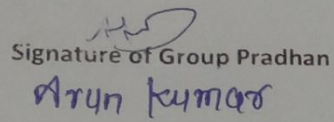 Signature of Group Pradhan
Arun Kumar